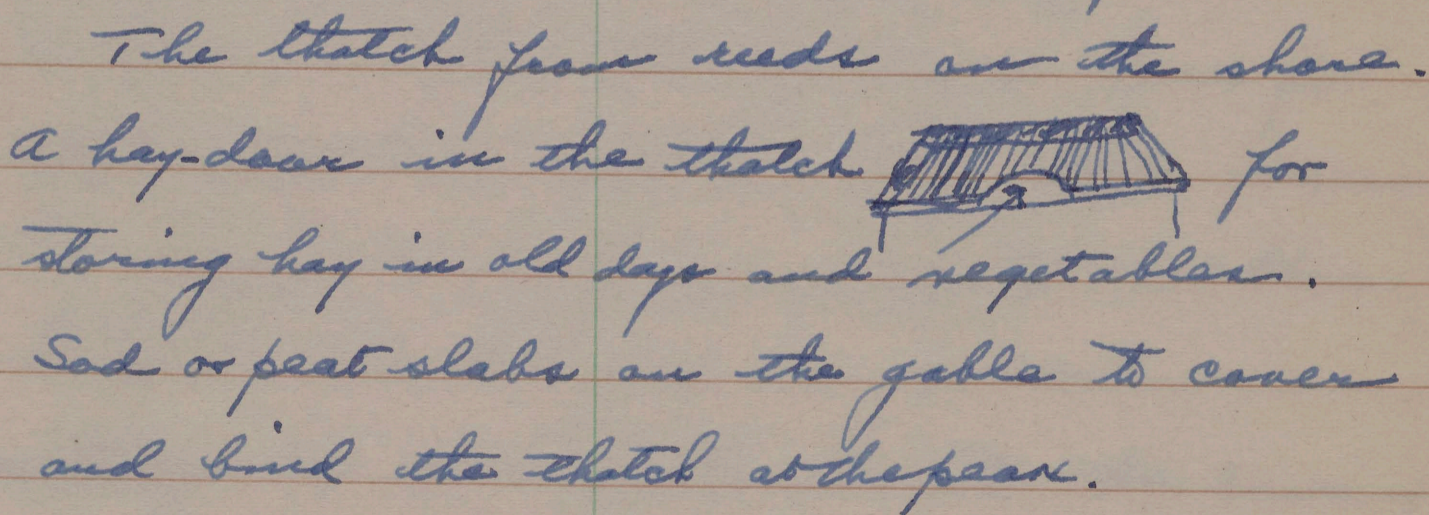 The thatch from reeds on the shore.
A hay-door in the thatch for
storing hay in old days and vegetables.
Sod or peat slabs on the gable to cover
and bind the thatch at the peak.